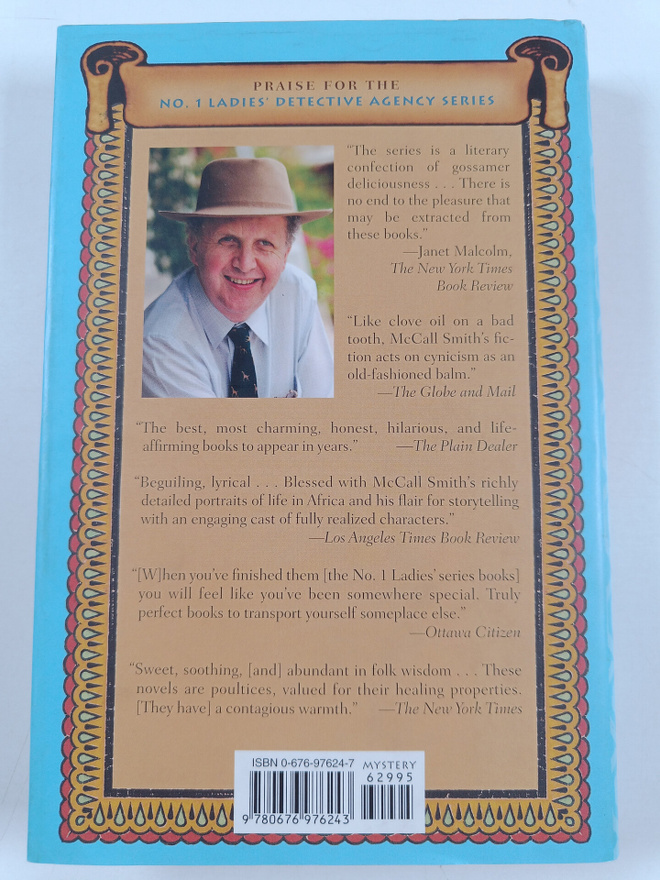 PRAISE FOR THE
NO. 1 LADIES' DETECTIVE AGENCY SERIES
"The series is a literary
confection of gossamer
deliciousness . . . There is
no end to the pleasure that
may be extracted from
these books."
—Janet Malcolm,
The New York Times
Book Review
"Like clove oil on a bad
tooth, McCall Smith's fic-
tion acts on cynicism as an
old-fashioned balm."
—The Globe and Mail
"The best, most charming, honest, hilarious, and life-
affirming books to appear in years." —The Plain Dealer
"Beguiling, lyrical . . . Blessed with McCall Smith's richly
detailed portraits of life in Africa and his flair for storytelling
with an engaging cast of fully realized characters."
—Los Angeles Times Book Review
"[W]hen you've finished them [the No. 1 Ladies' series books]
you will feel like you've been somewhere special. Truly
perfect books to transport yourself someplace else."
—Ottawa Citizen
"Sweet, soothing, [and] abundant in folk wisdom . . . These
novels are poultices, valued for their healing properties.
[They have] a contagious warmth." —The New York Times
ISBN 0-676-97624-7 MYSTERY
62995
9 780676 976243